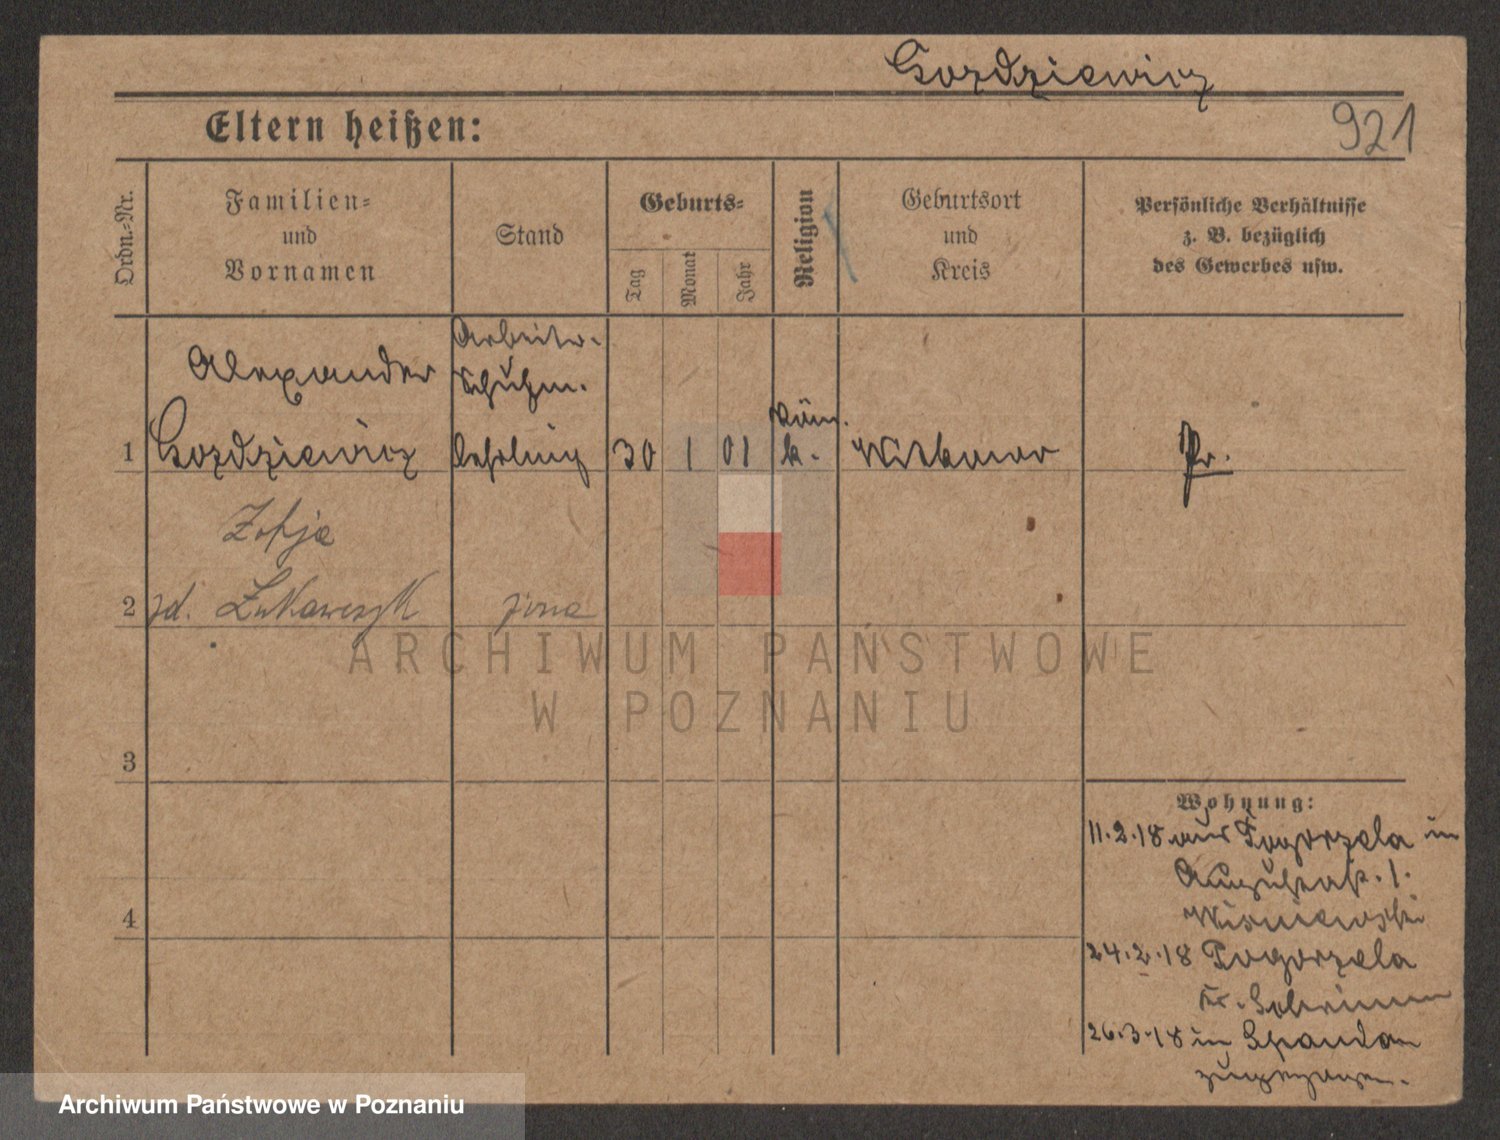 Gozdziewicz
921
Eltern heißen:
Ordn.-Nr.
Familien-
und
Vornamen
Stand
Geburts-
Tag
Monat
Jahr
Religion
Geburtsort
und
Kreis
Persönliche Verhältnisse
z. B. bezüglich
des Gewerbes usw.
Alexander
Arbeiter.
Schuhm.
1
Gozdziewicz
lehrling
30
1
01
röm.
k.
Witkowo
Pr.
Zofja
2
zd.
żona
3
4
Wohnung:
11.2.18 aus Pogorzela in
1.
Wisniewski
24.2.18 Pogorzela
Kr. Schrimm
26.3.18 in Spandau
zugezogen.
ARCHIWUM PAŃSTWOWE
W POZNANIU
Archiwum Państwowe w Poznaniu